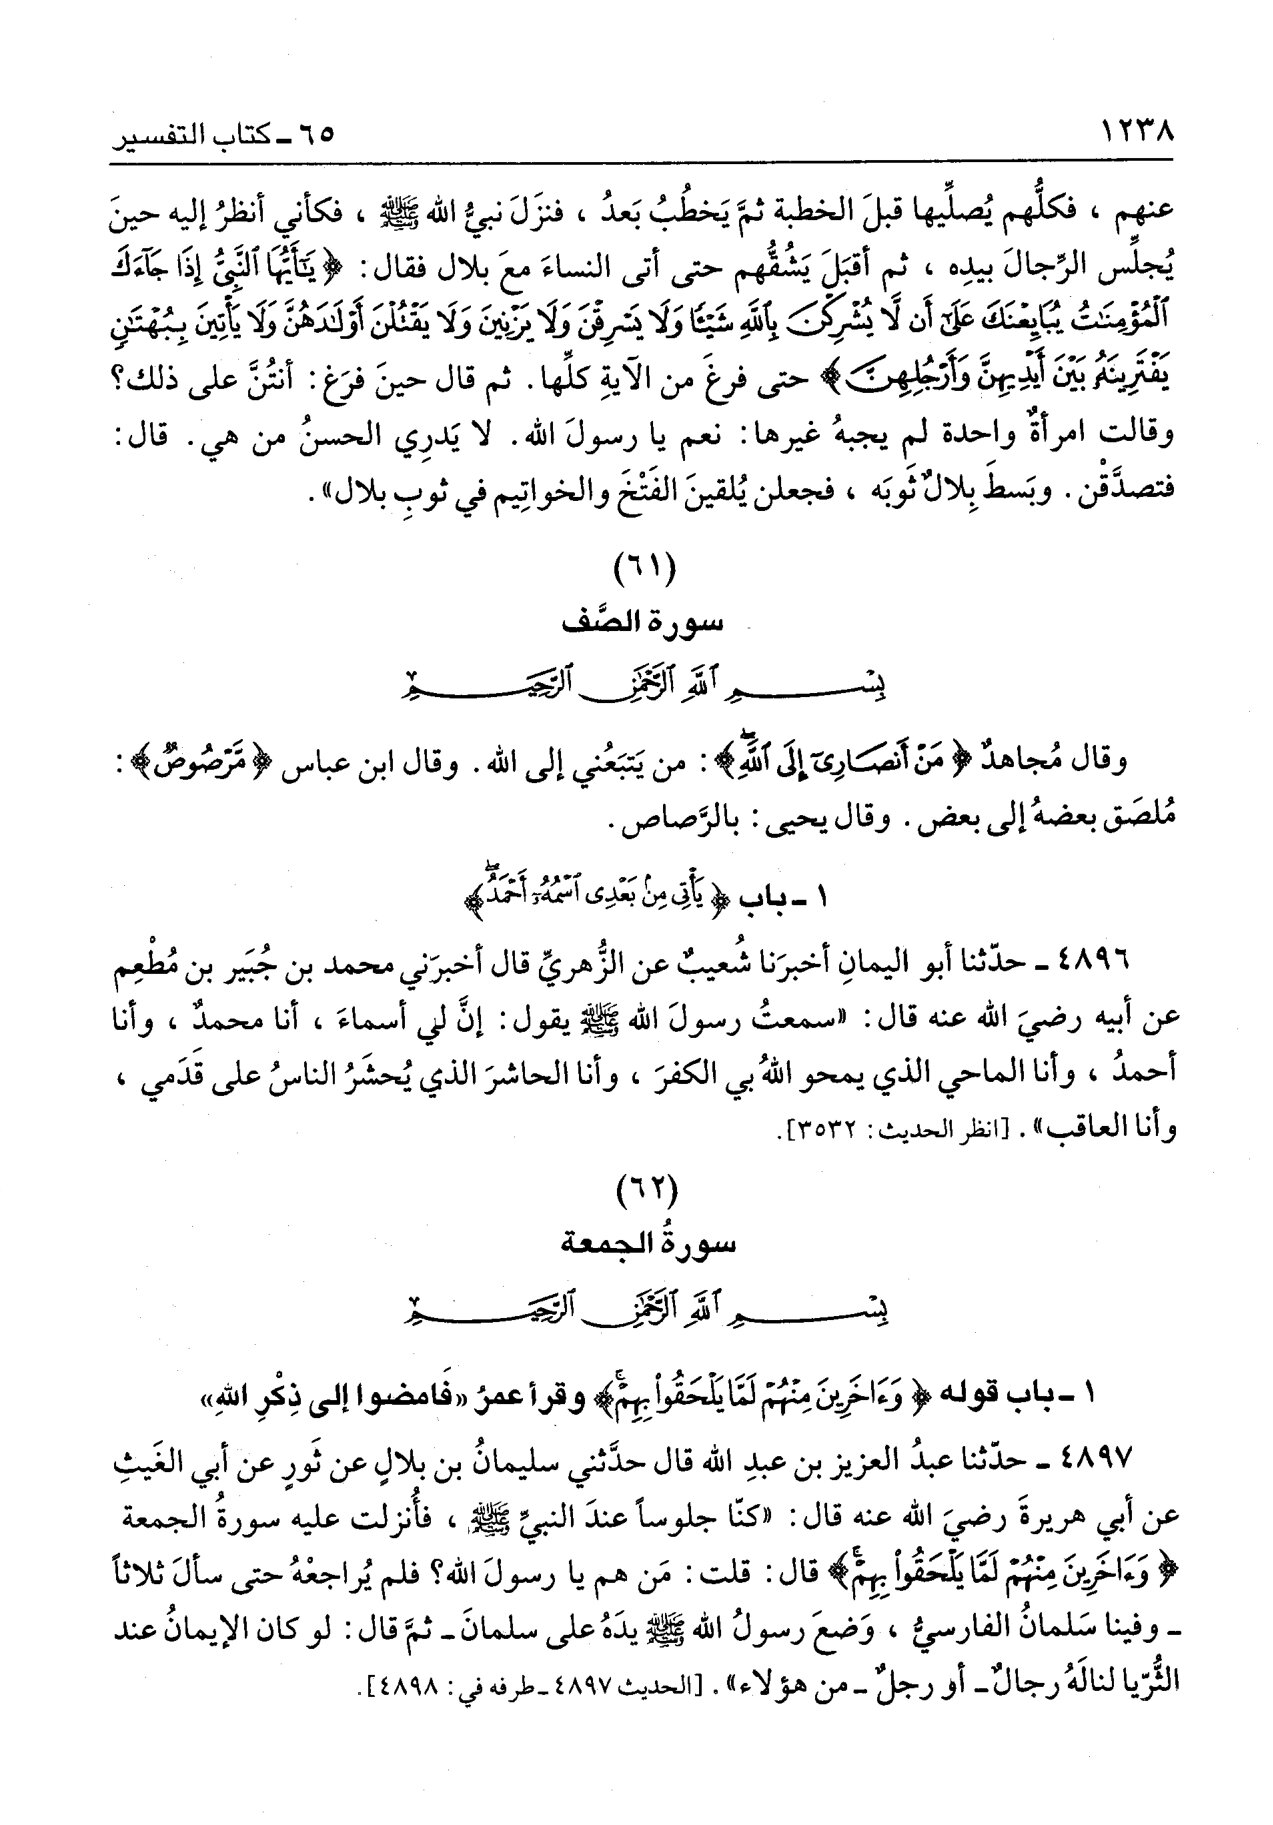 ١٢٣٨
٦٥ ـ كتاب التفسير
عنهم ، فكلُّهم يُصلِّيها قبلَ الخطبة ثمَّ يَخطُبُ بَعدُ ، فنزَلَ نبيُّ الله ﷺ ، فكأني أنظرُ إليه حينَ
يُجلِّس الرِّجالَ بيدِه ، ثم أقبَلَ يَشُقُّهم حتى أتى النساءَ معَ بلال فقال : ﴿ يَٰٓأَيُّهَا ٱلنَّبِيُّ إِذَا جَآءَكَ
ٱلْمُؤْمِنَٰتُ يُبَايِعْنَكَ عَلَىٰٓ أَن لَّا يُشْرِكْنَ بِٱللَّهِ شَيْـًٔا وَلَا يَسْرِقْنَ وَلَا يَزْنِينَ وَلَا يَقْتُلْنَ أَوْلَٰدَهُنَّ وَلَا يَأْتِينَ بِبُهْتَٰنٍ
يَفْتَرِينَهُۥ بَيْنَ أَيْدِيهِنَّ وَأَرْجُلِهِنَّ ﴾ حتى فرغَ من الآيةِ كلِّها . ثم قال حينَ فرَغ : أنتُنَّ على ذلك؟
وقالت امرأةٌ واحدة لم يجبهُ غيرها : نعم يا رسولَ الله . لا يَدرِي الحسنُ من هي . قال :
فتصدَّقْن . وبَسطَ بِلالٌ ثَوبَه ، فجعلن يُلقينَ الفَتْخَ والخواتِيم في ثوبِ بلال» .
(٦١)
سورة الصَّف
بِسْمِ ٱللَّهِ ٱلرَّحْمَٰنِ ٱلرَّحِيمِ
وقال مُجاهدٌ ﴿ مَنْ أَنصَارِىٓ إِلَى ٱللَّهِۖ ﴾ : من يَتبَعُني إلى الله . وقال ابن عباس ﴿ مَّرْصُوصٌ ﴾ :
مُلصَق بعضهُ إلى بعض . وقال يحيى : بالرَّصاص .
١ ـ باب ﴿ يَأْتِى مِنۢ بَعْدِى ٱسْمُهُۥٓ أَحْمَدُۖ ﴾
٤٨٩٦ ـ حدّثنا أبو اليمانِ أخبرَنا شُعيبٌ عن الزُّهريِّ قال أخبرَني محمد بن جُبَير بن مُطْعِم
عن أبيه رضيَ الله عنه قال : «سمعتُ رسولَ الله ﷺ يقول : إنَّ لي أسماءَ ، أنا محمدٌ ، وأنا
أحمدُ ، وأنا الماحي الذي يمحو اللهُ بي الكفرَ ، وأنا الحاشرَ الذي يُحشَرُ الناسُ على قَدَمي ،
وأنا العاقب» . [انظر الحديث : ٣٥٣٢] .
(٦٢)
سورةُ الجمعة
بِسْمِ ٱللَّهِ ٱلرَّحْمَٰنِ ٱلرَّحِيمِ
١ ـ باب قوله ﴿ وَءَاخَرِينَ مِنْهُمْ لَمَّا يَلْحَقُوا۟ بِهِمْۚ ﴾ وقرأ عمرُ «فَامضوا إلى ذِكْرِ اللهِ»
٤٨٩٧ ـ حدّثنا عبدُ العزيز بن عبدِ الله قال حدَّثني سليمانُ بن بلالٍ عن ثَورٍ عن أبي الغَيثِ
عن أبي هريرةَ رضيَ الله عنه قال : «كنّا جلوساً عندَ النبيِّ ﷺ ، فأُنزلت عليه سورةُ الجمعة
﴿ وَءَاخَرِينَ مِنْهُمْ لَمَّا يَلْحَقُوا۟ بِهِمْۚ ﴾ قال : قلت : مَن هم يا رسولَ الله؟ فلم يُراجعْهُ حتى سألَ ثلاثاً
ـ وفينا سَلمانُ الفارسيُّ ، وَضعَ رسولُ الله ﷺ يدَهُ على سلمانَ ـ ثمَّ قال : لو كان الإيمانُ عند
الثُّريّا لنالَهُ رجالٌ ـ أو رجلٌ ـ من هؤلاء» . [الحديث ٤٨٩٧ ـ طرفه في : ٤٨٩٨] .